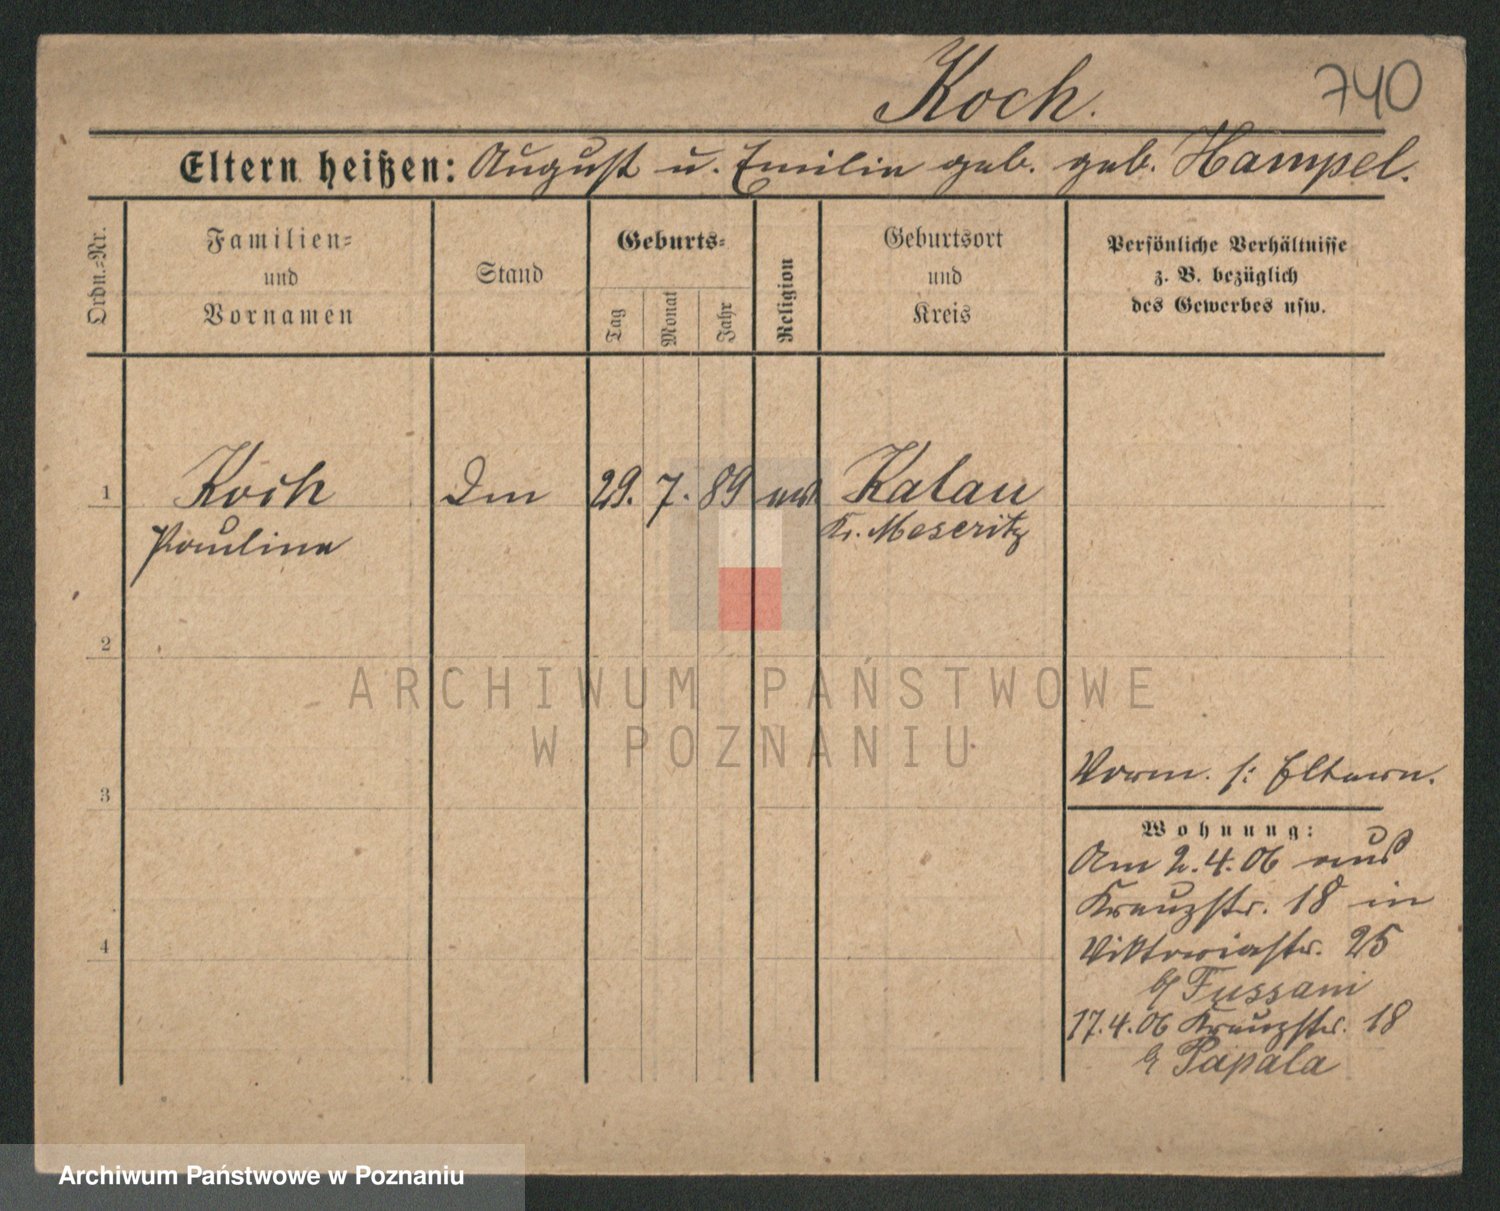 Koch.
740
Eltern heißen: August u. Emilie geb. geb. Hampel.
Ordn.=Nr.
Familien=
und
Vornamen
Stand
Geburts=
Tag
Monat
Jahr
Religion
Geburtsort
und
Kreis
Persönliche Verhältnisse
z. B. bezüglich
des Gewerbes usw.
1 Koch 29. 7. 89 Kalau
Pauline Kr. Meseritz
2
ARCHIWUM PAŃSTWOWE
W POZNANIU
3
Vorm. s: Eltern.
Wohnung:
Am 2.4.06 aus
Kreuzstr. 18 in
4
Viktoriastr. 25
b/ Fussani
17.4.06 Kreuzstr. 18
b/ Papala
Archiwum Państwowe w Poznaniu